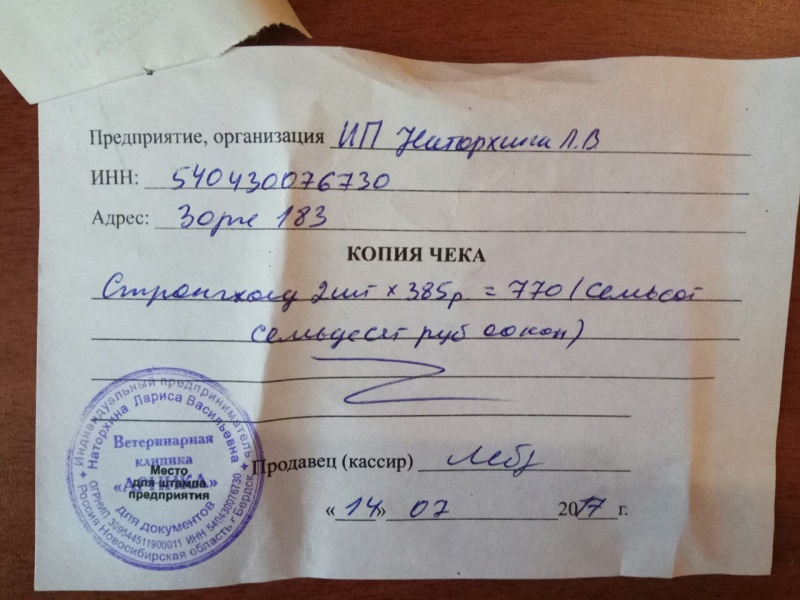 Предприятие, организация ИП Наторхина Л.В
ИНН: 540430076730
Адрес: Зорге 183
КОПИЯ ЧЕКА
Стронгхолд 2шт × 385р. = 770 (семьсот
семьдесят руб 00коп)
Индивидуальный предприниматель
Наторхина Лариса Васильевна
Ветеринарная
клиника
Место
для штампа
предприятия
для документов
ОГРНИП 309544511900011 ИНН 540430076730
Россия Новосибирская область г. Бердск
Продавец (кассир)
«14» 07 2017 г.